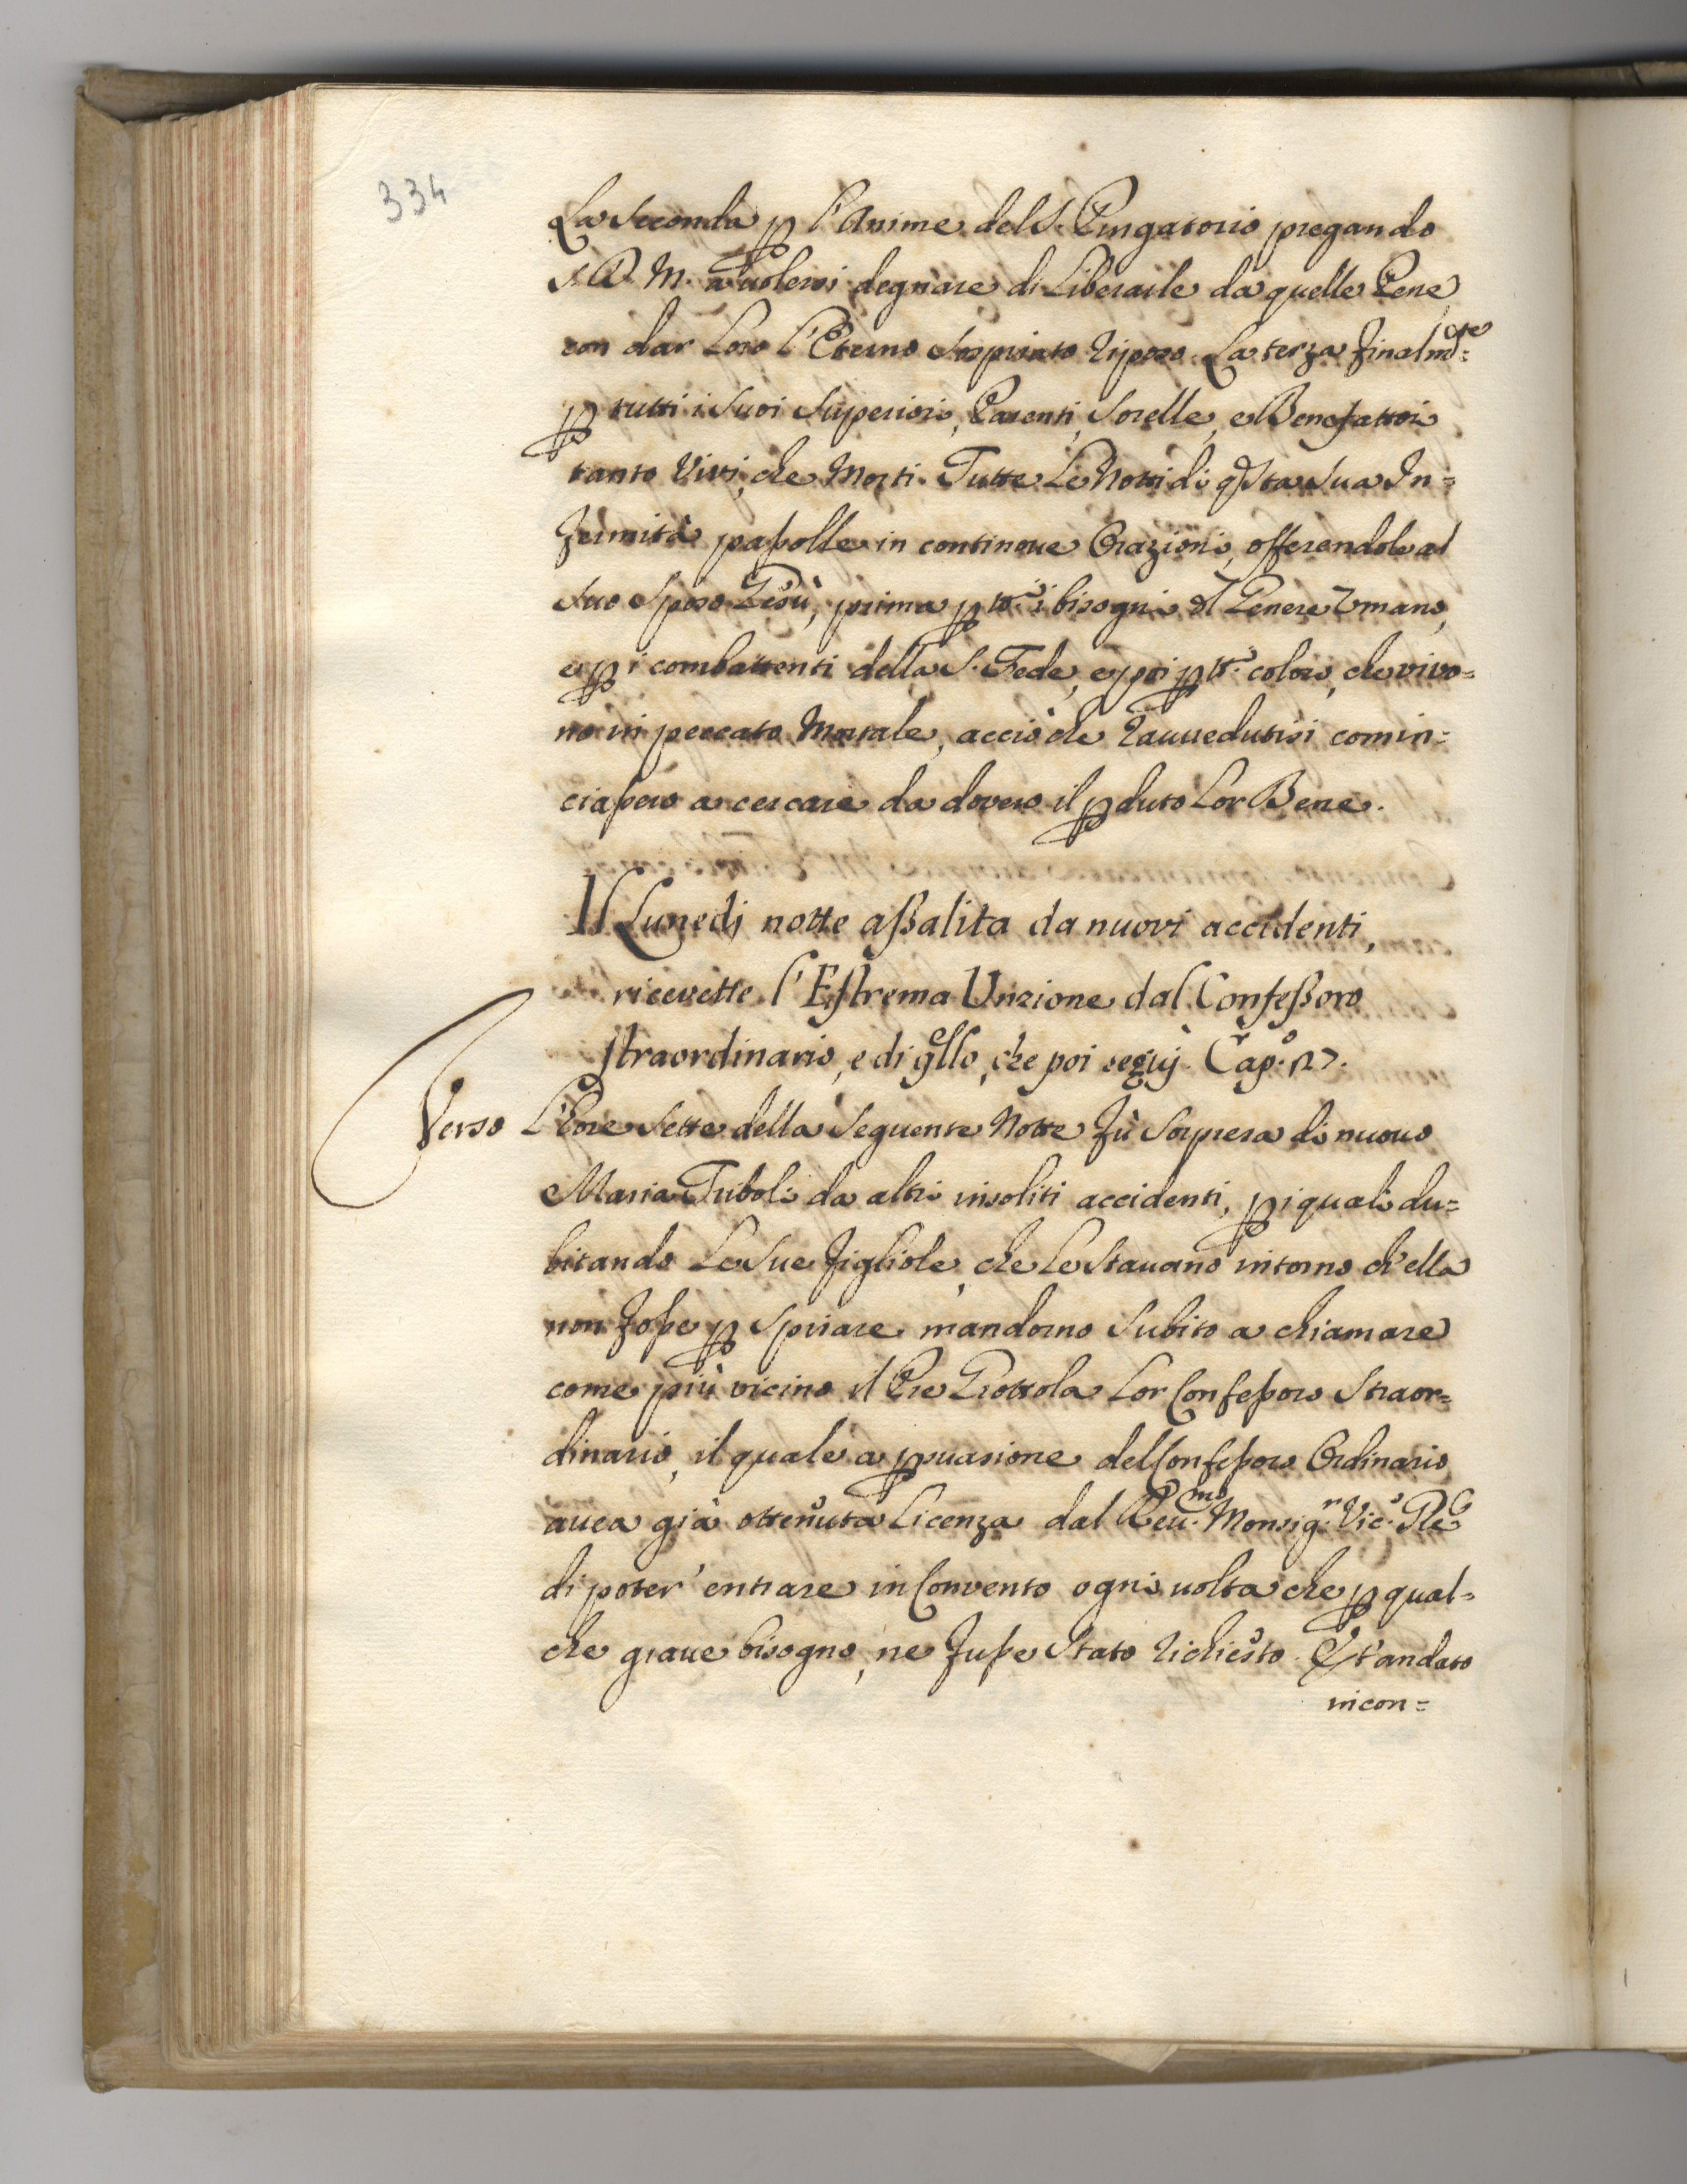 334
La Seconda p l'Anime del S. Purgatorio pregando
S. D. M. à volersi degnare di Liberarle da quelle Pene
con dar Loro l'Eterno Sospirato riposo. La terza finalmte=
p tutti i Suoi Superiori, Parenti, Sorelle, e Benefattori
tanto Vivi, che Morti. Tutte Le Notti di qsta Sua In=
fermità passolle in continoue Orazioni, offerendole al
Suo Sposo Giesù, prima p tti i bisogni dl Genere Umano,
e p i combattenti della S. Fede, e poi p tti coloro, che vivo=
no in peccato Mortale, acciò che ravvedutisi comin=
ciassero a cercare da dovero il pduto Lor Bene.
Il Lunedì notte assalita da nuovi accidenti,
ricevette l'Estrema Unzione dal Confessoro
straordinario, e di qllo, che poi seguì. Cap.o 27.
Verso L'Ore Sette della Seguente Notte fù Sorpresa di nuovo
Maria Triboli da altri insoliti accidenti, p i quali du=
bitando Le Sue figliole, che Le Stavano intorno ch'ella
non fosse p Spirare mandorno Subito a chiamare
come più vicino il Pre Grottola Lor Confessoro Straor=
dinario, il quale a psuasione del Confessoro Ordinario
avea già ottenuta Licenza dal Reu.mo Monsig.r Vic.o Gle
di poter' entrare in Convento ogni volta che p qual=
che grave bisogno, ne fusse Stato richiesto. Et andato
in con=